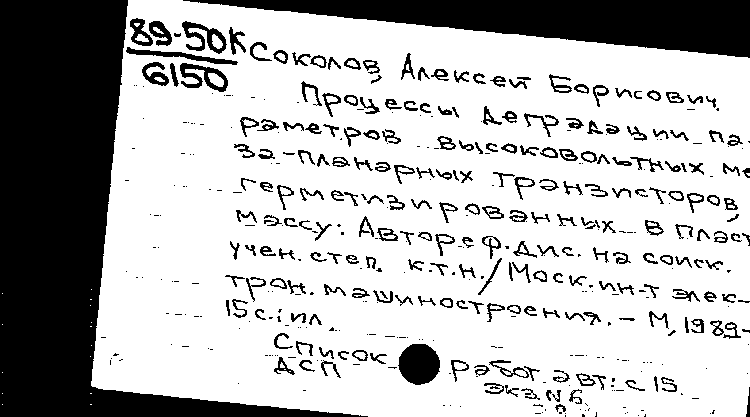 89-50К
6150
Соколов, Алексей Борисович.
Процессы деградации па-
раметров высоковольтных ме
за-планарных транзисторов,
герметизированных в пласт
массу: Автореф. дис. на соиск.
учен. степ. к.т.н. / Моск. ин-т элек-
трон. машиностроения. – М, 1989-
15 с.: ил.
Список работ авт.: с 15.
ДСП экз. № 6.